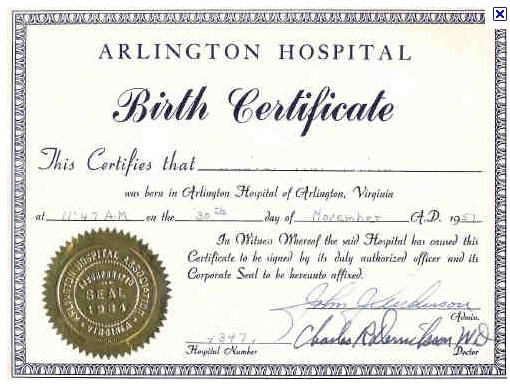 ARLINGTON HOSPITAL
Birth Certificate
This Certifies that
was born in Arlington Hospital of Arlington, Virginia
at 11:47 A.M on the 30th day of November A.D. 1957
In Witness Whereof the said Hospital has caused this
Certificate to be signed by its duly authorized officer and its
Corporate Seal to be hereunto affixed.
ARLINGTON HOSPITAL ASSOCIATION
INCORPORATED
SEAL
1934
VIRGINIA
Admin.
Charles R
M D
Hospital Number
Doctor